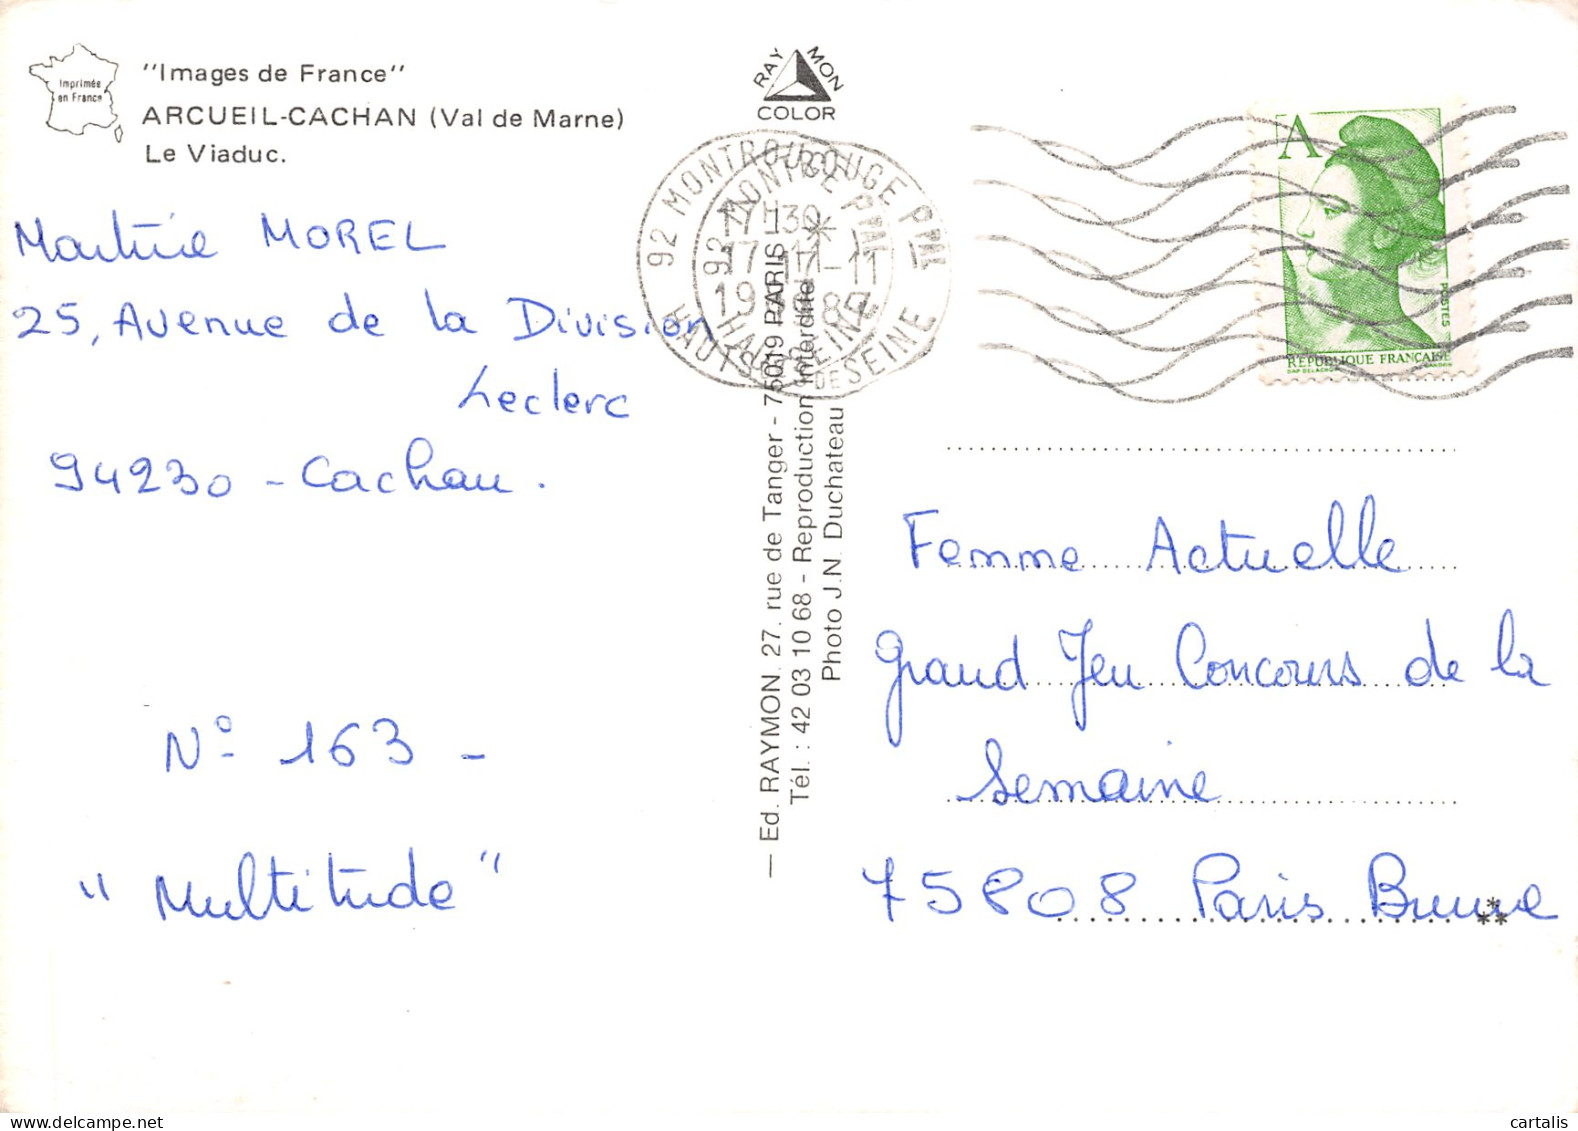 Imprimée
en France
"Images de France"
ARCUEIL-CACHAN (Val de Marne)
Le Viaduc.
RAYMON
COLOR
Martine MOREL
25, Avenue de la Division
Leclerc
94230 - Cachan.
N° 163 -
"Multitude"
— Ed. RAYMON. 27. rue de Tanger - 75019 PARIS
Tél. : 42 03 10 68 - Reproduction Interdite
Photo J.N. Duchateau
92 MONTROUGE PPAL
17H30
17-11
HAUTS DE SEINE
A
POSTES
RÉPUBLIQUE FRANÇAISE
Femme Actuelle
Grand Jeu Concours de la
Semaine
75808 Paris Brune
cartalis
delcampe.net